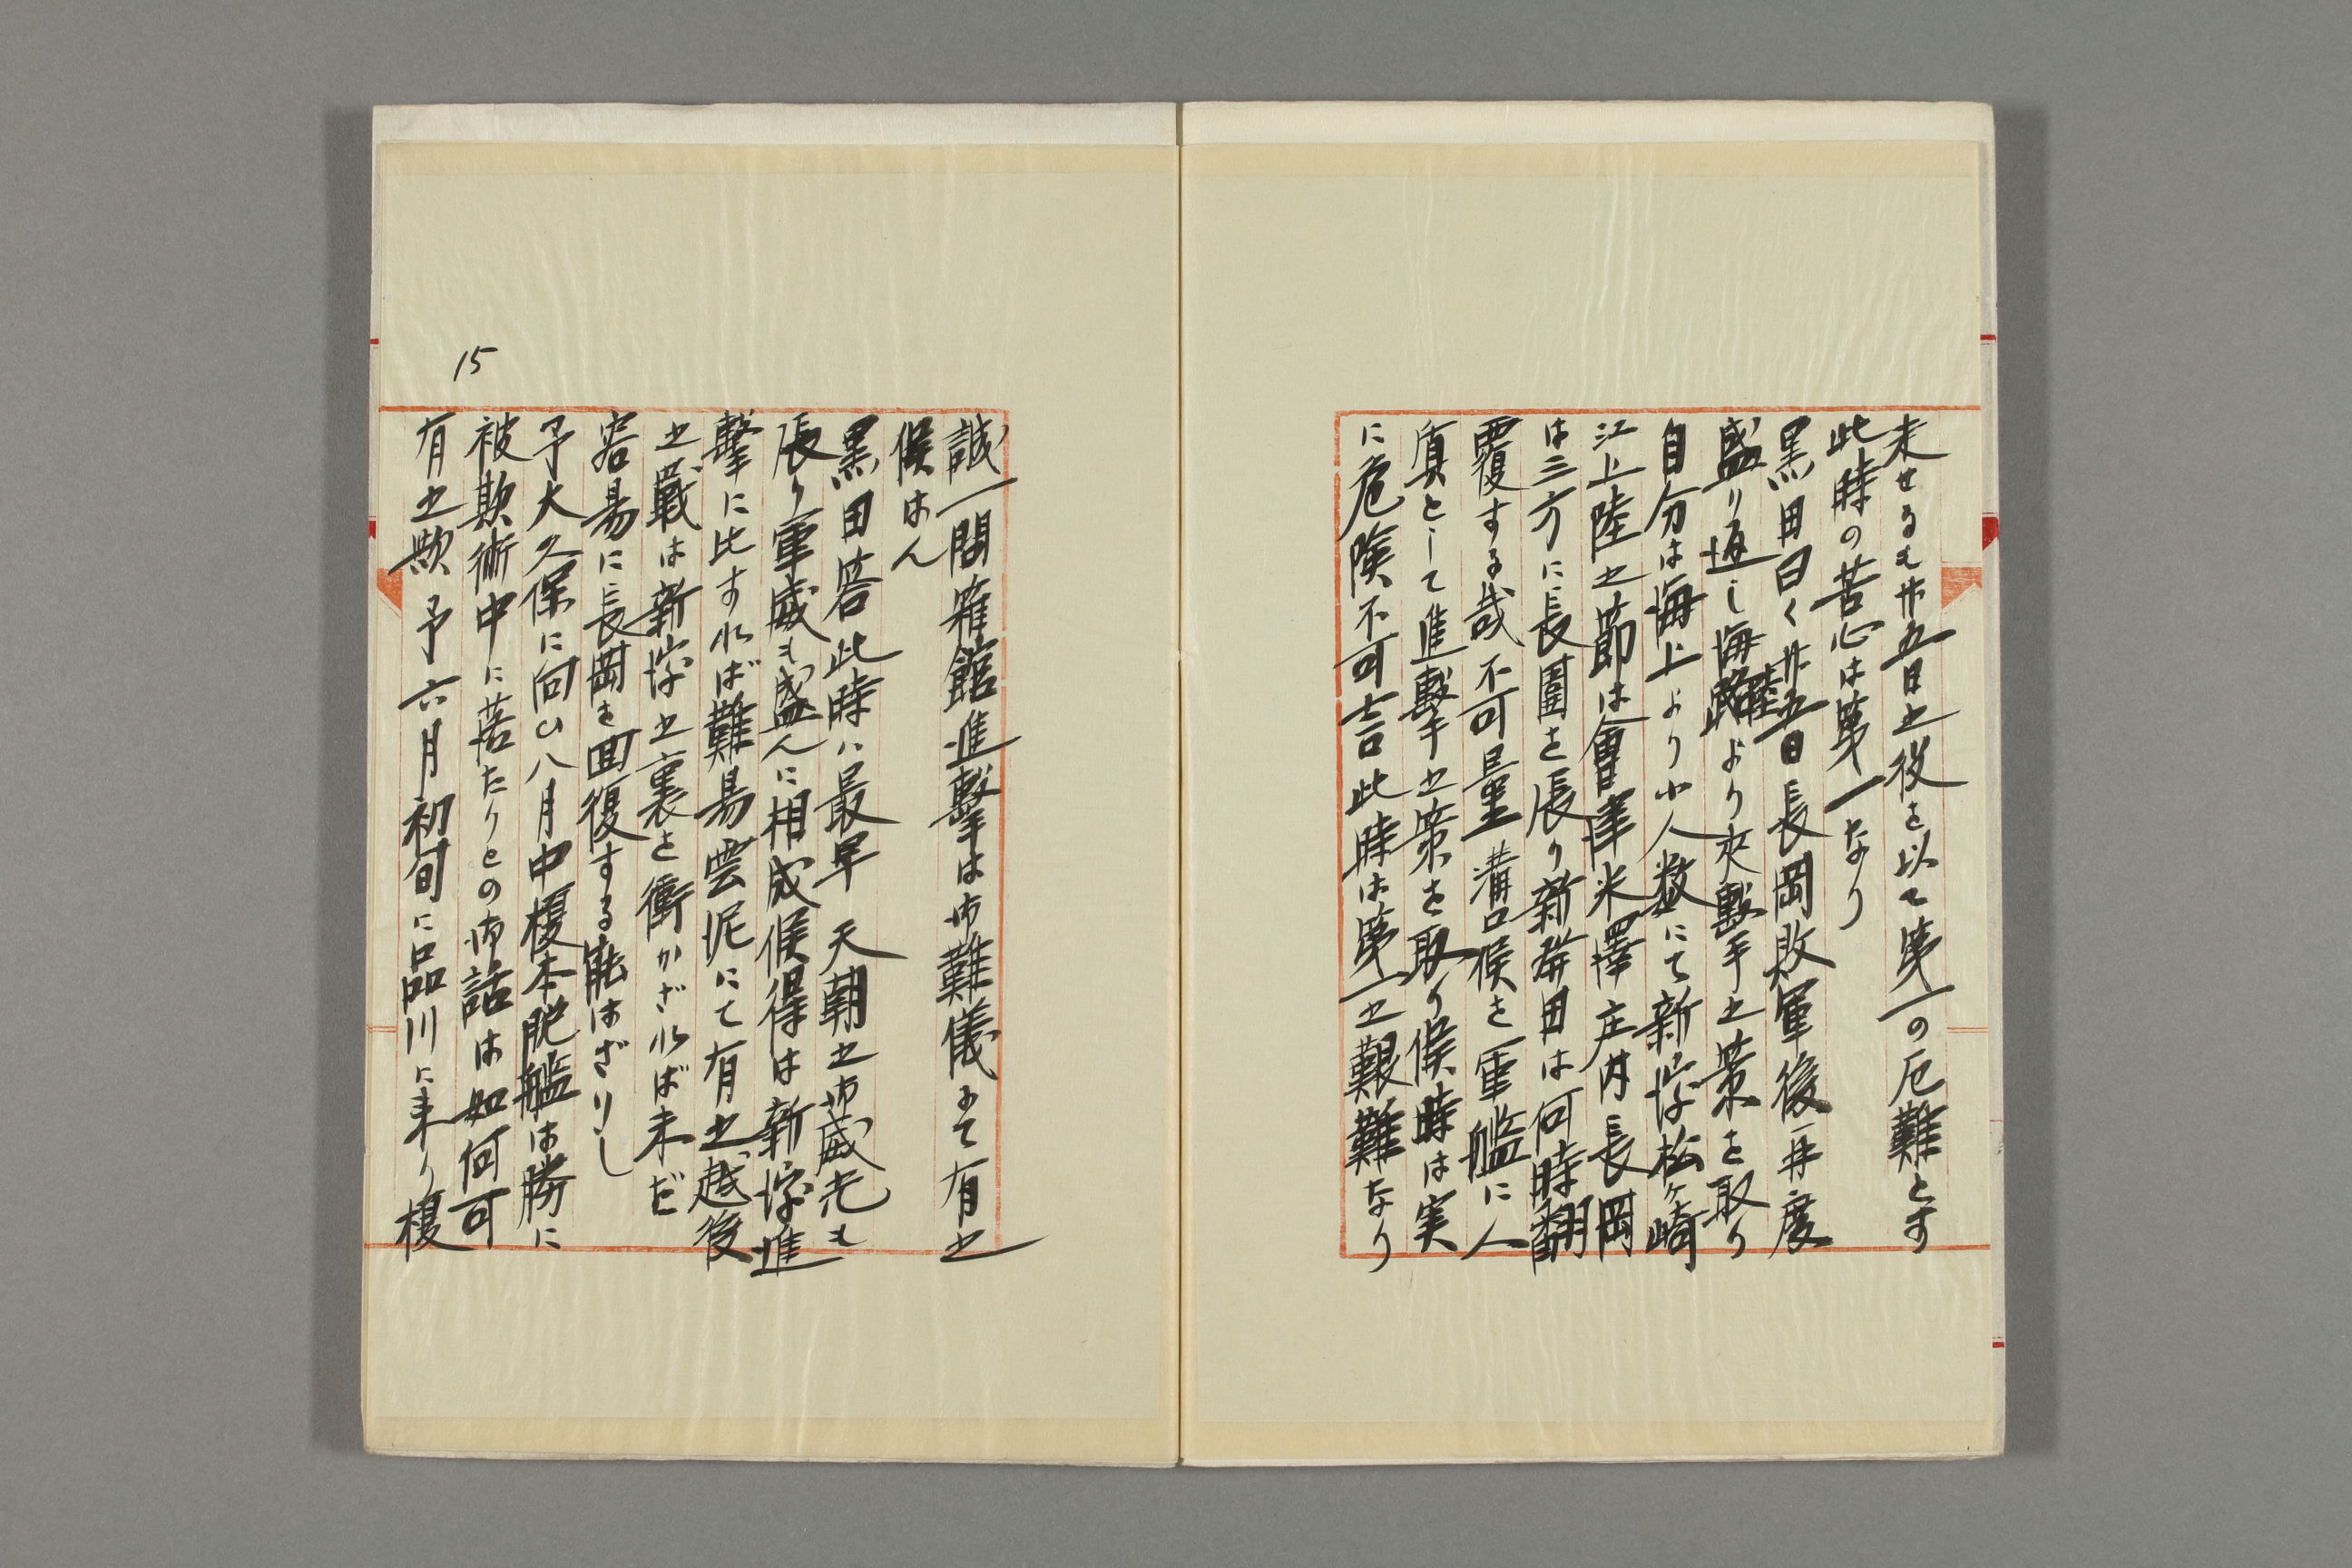 来せるも廿五日之役を以て第一の厄難とす
此時の苦心は第一なり
黒田曰く廿五日長岡敗軍後再度
盛り返し海陸路より夾撃之策を取り
自分は海上より小人数にて新潟松ヶ崎
江上陸之節は會津米澤庄内長岡
は三方に長圍を張り新発田は何時翻
覆する哉不可量溝口侯を軍艦に人
質として進撃之策を取り候時は実
に危険不可言此時は第一之艱難なり
誠一問箱館進撃は御難儀にて有之
候はん
黒田答此時ハ最早 天朝之御威光も
張り軍威も盛んに相成候得は新潟進
撃に比すれば難易雲泥にて有之越後
之戦は新潟之裏を衝かざれば未だ
容易に長岡を回復する能はざりし
予大久保に向ひ八月中榎本脱艦は勝に
被欺術中に落たりとの御話は如何可
有之歟予六月初旬に品川に来り榎
15